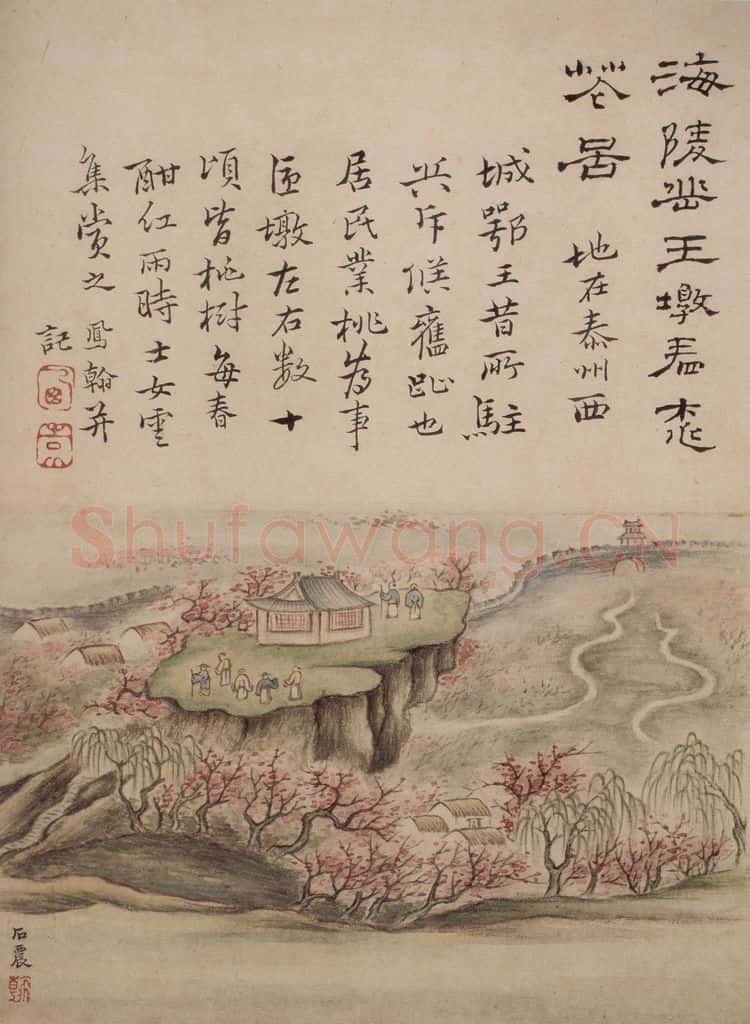 海陵岳王墩看桃
花啚 地在泰州西
城鄂王昔所駐
兵斥候舊趾也
居民業桃為事
匝墩左右數十
頃皆桃樹每春
酣紅雨時士女雲
集賞之 鳳翰并
記
石震
Shufawang.CN